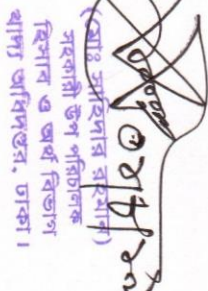 (মোঃ মাহিদার রহমান)
সহকারী উপ পরিচালক
হিসাব ও অর্থ বিভাগ
খাদ্য অধিদপ্তর, ঢাকা।